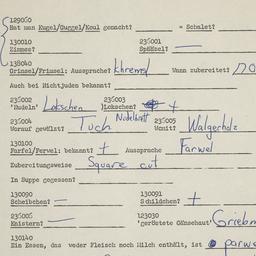 129060
Hat man Kugel/Guggel/Keul gemacht? = Schalet?
130010 236001
Zimmes? Spänsel? —
138040
Grinsel/Friusel: Aussprache? Wann zubereitet? no
Auch bei Nichtjuden bekannt?
236002 236003
'Nudeln' Lokschen )Lokschen? +
236004 Nudelbrett 236005
Worauf gewälzt? Tuch Womit? Walgerholz
130100
Farfel/Fervel: bekannt? + Aussprache Farwel
Zubereitungsweise Square cut
In Suppe gegessen?
130090 130091
Scheibchen? = Schildchen? +
236006 123030
Knistern? — 'geröstete Gänsehaut'
130140
Ein Essen, das weder Fleisch noch Milch enthält, ist parwe